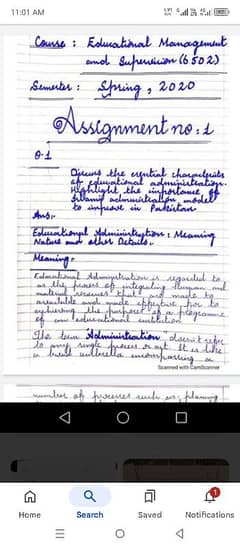 11:01 AM
Course : Educational Management
and Supervision (6502)
Semester : Spring, 2020
Assignment no : 1
Q.1
Discuss the essential characteristics
of educational administration.
Highlight the importance of
Islamic administration model
to improve in Pakistan
Ans:-
Educational Administration : Meaning
Nature and other Details.
Meaning:-
Educational Administration is regarded to
as the process of integrating human and
material resources that are made to
available and made effective for to
achieving the purposes of a programme
of an educational institution
The term "Administration" doesn't refer
to any single process or act. It is like
a broad umbrella encompassing a
Scanned with CamScanner
number of processes such as; planning
Home
Search
Saved
1
Notifications